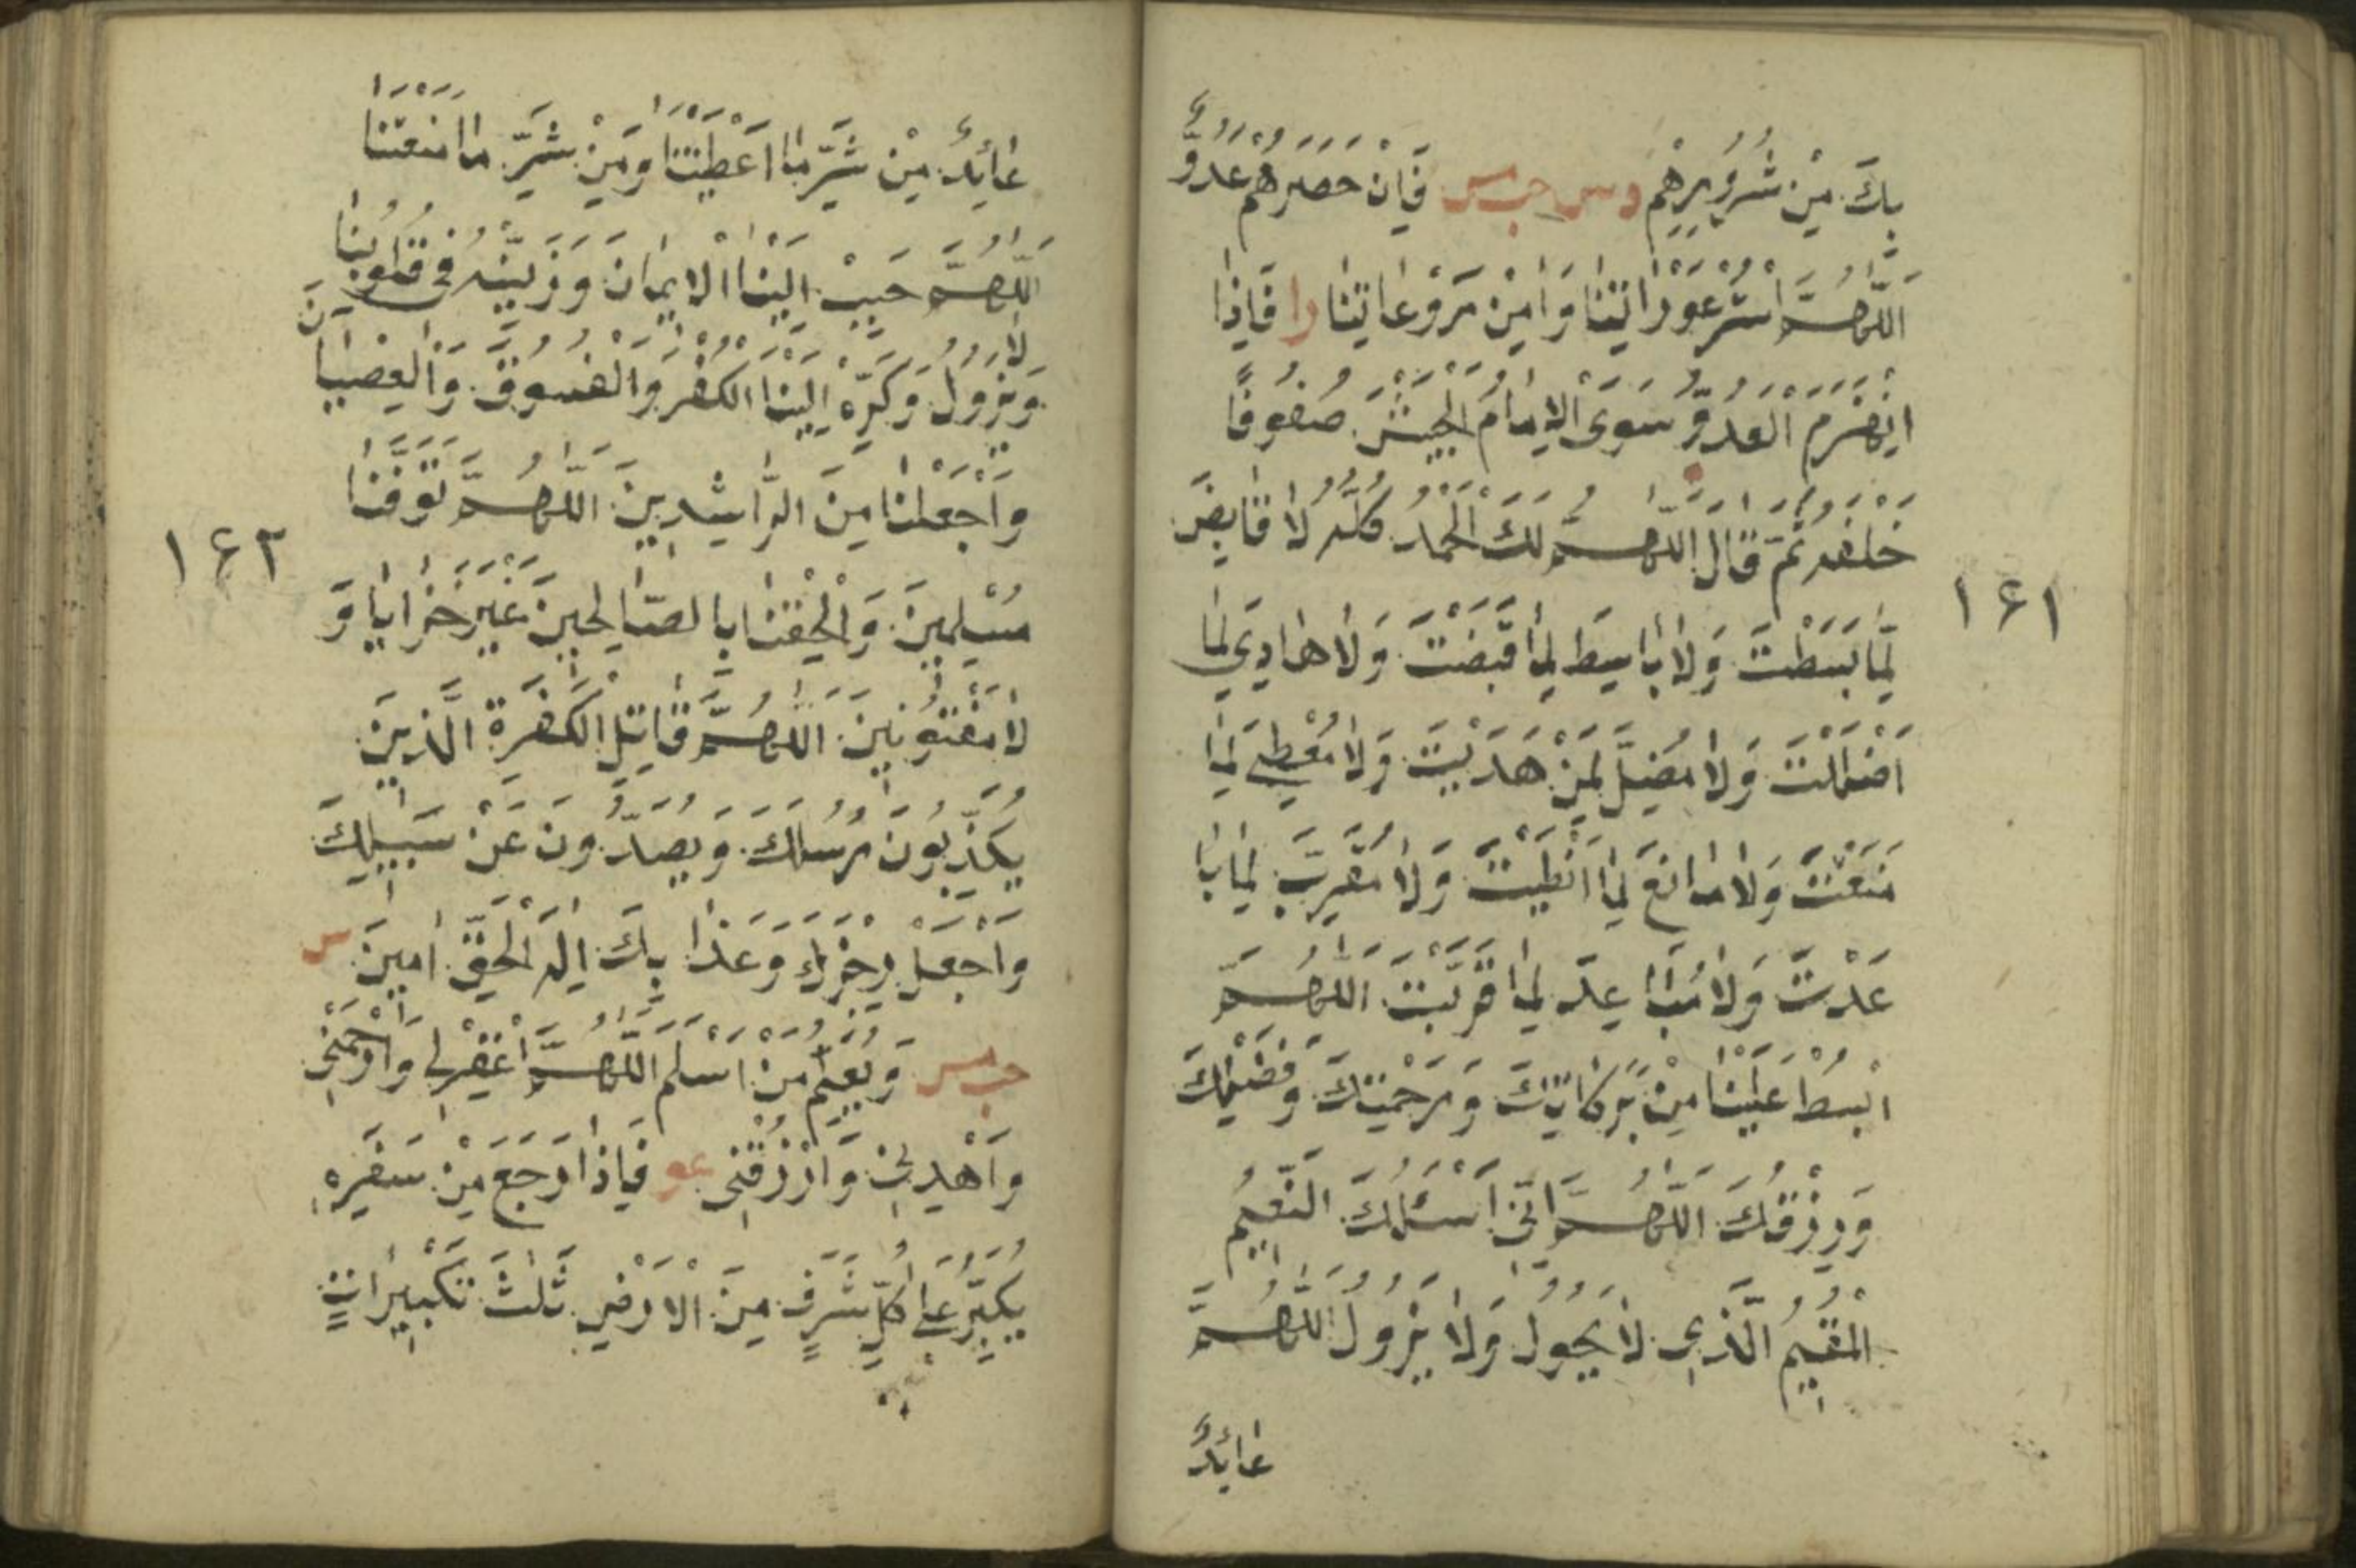 بِكَ مِنْ شُرُورِهِمْ د س حب مس فَاِنْ حَصَرَهُمْ عَدُوٌّ
اَللّٰهُمَّ اسْتُرْ عَوْرَاتِنَا وَاٰمِنْ رَوْعَاتِنَا را فَاِذَا
انْهَزَمَ الْعَدُوُّ سَوَّى الْاِمَامُ الْجَيْشَ صُفُوفًا
خَلْفَهُ ثُمَّ قَالَ اَللّٰهُمَّ لَكَ الْحَمْدُ كُلُّهُ لَا قَابِضَ
لِمَا بَسَطْتَ وَلَا بَاسِطَ لِمَا قَبَضْتَ وَلَا هَادِيَ لِمَا
اَضْلَلْتَ وَلَا مُضِلَّ لِمَنْ هَدَيْتَ وَلَا مُعْطِيَ لِمَا
مَنَعْتَ وَلَا مَانِعَ لِمَا اَعْطَيْتَ وَلَا مُقَرِّبَ لِمَا بَا
عَدْتَ وَلَا مُبَاعِدَ لِمَا قَرَّبْتَ اَللّٰهُمَّ
ابْسُطْ عَلَيْنَا مِنْ بَرَكَاتِكَ وَرَحْمَتِكَ وَفَضْلِكَ
وَرِزْقِكَ اَللّٰهُمَّ اِنِّي اَسْئَلُكَ النَّعِيمَ
الْمُقِيمَ الَّذِي لَا يَحُولُ وَلَا يَزُولُ اَللّٰهُمَّ
عَائِذٌ
١٦١
عَائِذٌ مِنْ شَرِّ مَا اَعْطَيْتَنَا وَمِنْ شَرِّ مَا مَنَعْتَنَا
اَللّٰهُمَّ حَبِّبْ اِلَيْنَا الْاِيمَانَ وَزَيِّنْهُ فِي قُلُوبِنَا
وَلَا يَزُولُ وَكَرِّهْ اِلَيْنَا الْكُفْرَ وَالْفُسُوقَ وَالْعِصْيَانَ
وَاجْعَلْنَا مِنَ الرَّاشِدِينَ اَللّٰهُمَّ تَوَفَّنَا
مُسْلِمِينَ وَاَلْحِقْنَا بِالصَّالِحِينَ غَيْرَ خَزَايَا وَ
لَا مَفْتُونِينَ اَللّٰهُمَّ قَاتِلِ الْكَفَرَةَ الَّذِينَ
يُكَذِّبُونَ رُسُلَكَ وَيَصُدُّونَ عَنْ سَبِيلِكَ
وَاجْعَلْ رِجْزَكَ وَعَذَابَكَ اِلٰهَ الْحَقِّ اٰمِينَ س
حب مس وَيُعَلِّمُ مَنْ اَسْلَمَ اَللّٰهُمَّ اغْفِرْ لِي وَارْحَمْنِي
وَاهْدِنِي وَارْزُقْنِي عو فَاِذَا رَجَعَ مِنْ سَفَرِهِ
يُكَبِّرُ عَلَى كُلِّ شَرَفٍ مِنَ الْاَرْضِ ثَلٰثَ تَكْبِيرَاتٍ
١٦٢